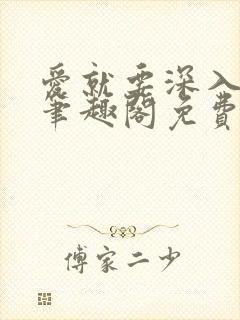 愛就要深入
筆趣閣免費
傅家二少